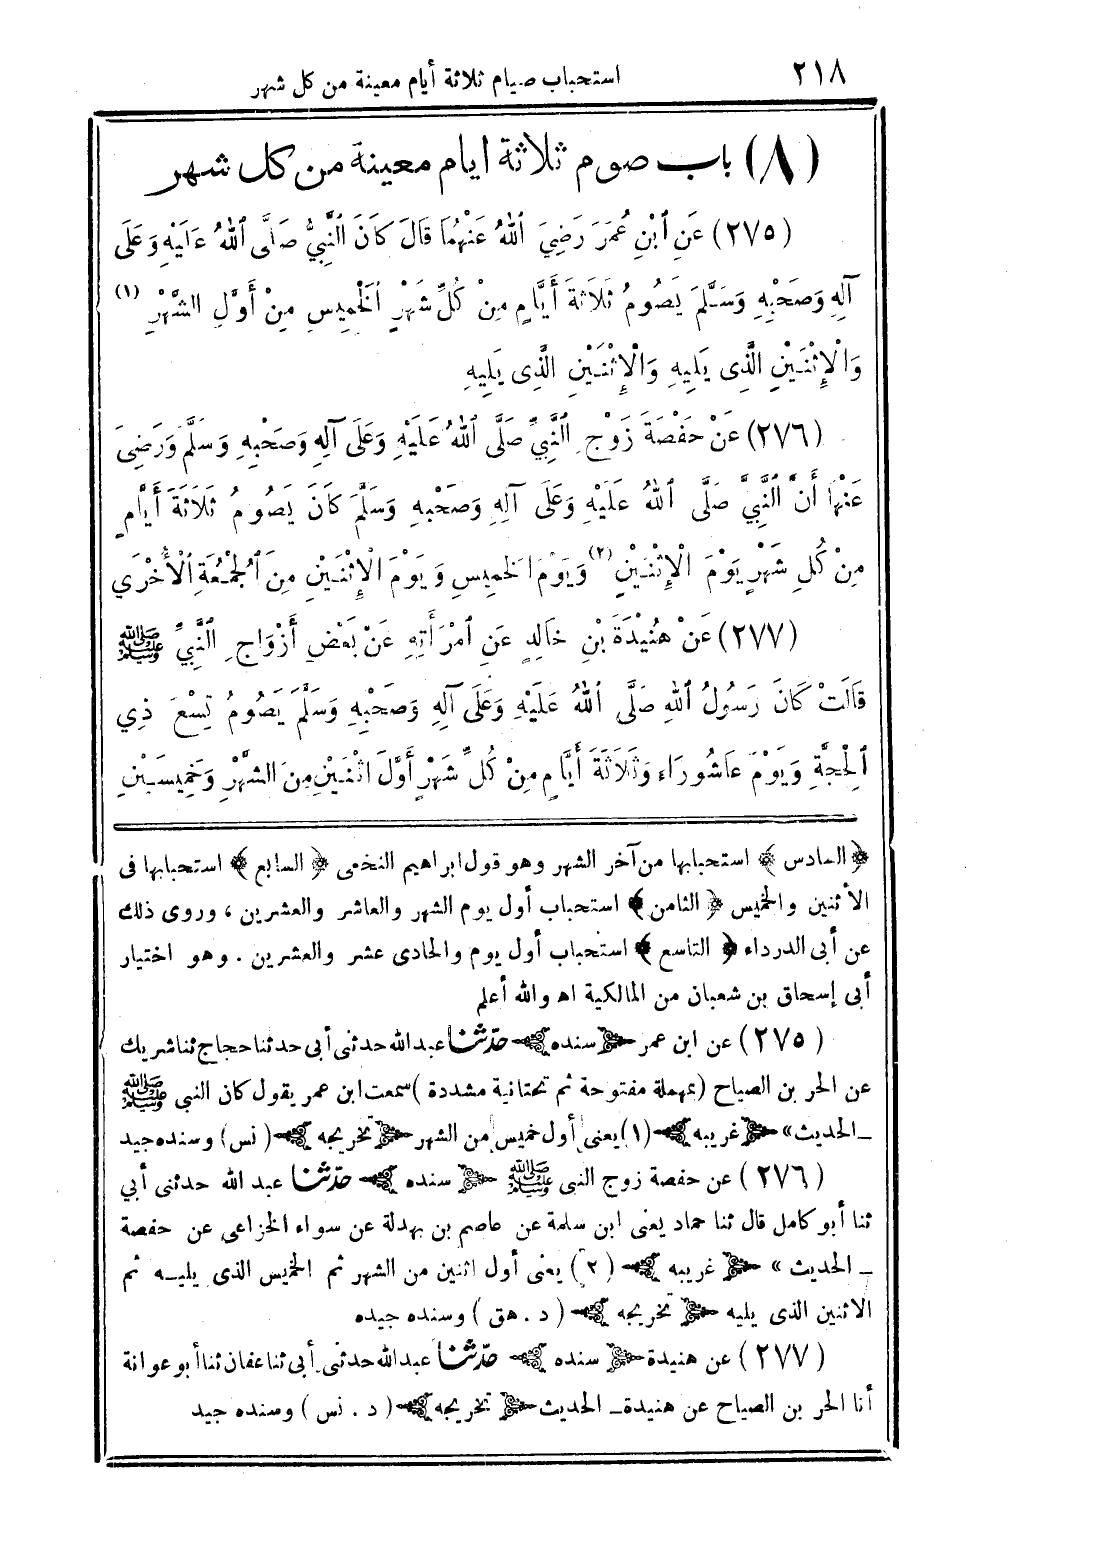 ٢١٨ استحباب صيام ثلاثة أيام معينة من كل شهر
(٨) باب صوم ثلاثة ايام معينة من كل شهر
(٢٧٥) عَنِ ابْنِ عُمَرَ رَضِيَ اللهُ عَنْهُمَا قَالَ كَانَ النَّبِيُّ صَلَّى اللهُ عَلَيْهِ وَعَلَى
آلِهِ وَصَحْبِهِ وَسَلَّمَ يَصُومُ ثَلَاثَةَ أَيَّامٍ مِنْ كُلِّ شَهْرٍ الْخَمِيسِ مِنْ أَوَّلِ الشَّهْرِ (١)
وَالْإِثْنَيْنِ الَّذِى يَلِيهِ وَالْإِثْنَيْنِ الَّذِى يَلِيهِ
(٢٧٦) عَنْ حَفْصَةَ زَوْجِ النَّبِيِّ صَلَّى اللهُ عَلَيْهِ وَعَلَى آلِهِ وَصَحْبِهِ وَسَلَّمَ وَرَضِيَ
عَنْهَا أَنَّ النَّبِيَّ صَلَّى اللهُ عَلَيْهِ وَعَلَى آلِهِ وَصَحْبِهِ وَسَلَّمَ كَانَ يَصُومُ ثَلَاثَةَ أَيَّامٍ
مِنْ كُلِ شَهْرٍ يَوْمَ الْإِثْنَيْنِ (٢) وَيَوْمَ الخَمِيسِ وَيَوْمَ الْإِثْنَيْنِ مِنَ الْجُمْعَةِ الْأُخْرَى
(٢٧٧) عَنْ هُنَيْدَةَ بْنِ خَالِدٍ عَنِ امْرَأَتِهِ عَنْ بَعْضِ أَزْوَاجِ النَّبِيِّ ﷺ
قَالَتْ كَانَ رَسُولُ اللهِ صَلَّى اللهُ عَلَيْهِ وَعَلَى آلِهِ وَصَحْبِهِ وَسَلَّمَ يَصُومُ تِسْعَ ذِي
الْحِجَّةِ وَيَوْمَ عَاشُورَاءَ وَثَلَاثَةَ أَيَّامٍ مِنْ كُلِّ شَهْرٍ أَوَّلَ اثْنَيْنِ مِنَ الشَّهْرِ وَخَمِيسَيْنِ
﴿السادس﴾ استحبابها من آخر الشهر وهو قول ابراهيم النخعى ﴿السابع﴾ استحبابها فى
الأثنين والخميس ﴿الثامن﴾ استحباب أول يوم الشهر والعاشر والعشرين ، وروى ذلك
عن أبى الدرداء ﴿التاسع﴾ استحباب أول يوم والحادى عشر والعشرين . وهو اختيار
أبى إسحاق بن شعبان من المالكية اه والله أعلم
(٢٧٥) عن ابن عمر ﴿سنده﴾ حدّثنا عبد الله حدثنى أبى حدثنا حجاج ثنا شريك
عن الحر بن الصياح (بمهملة مفتوحة ثم تحتانية مشددة) سمعت ابن عمر يقول كان النبى ﷺ
ـ الحديث» ﴿غريبه﴾ (١) يعنى أول خميس من الشهر ﴿تخريجه﴾ (نس) وسنده جيد
(٢٧٦) عن حفصة زوج النبى ﷺ ﴿سنده﴾ حدّثنا عبد الله حدثنى أبي
ثنا أبو كامل قال ثنا حماد يعنى ابن سلمة عن عاصم بن بهدلة عن سواء الخزاعى عن حفصة
ـ الحديث» ﴿غريبه﴾ (٢) يعنى أول اثنين من الشهر ثم الخميس الذى يليه ثم
الاثنين الذى يليه ﴿تخريجه﴾ (د . هق) وسنده جيده
(٢٧٧) عن هنيدة ﴿سنده﴾ حدّثنا عبد الله حدثنى أبى ثنا عفان ثنا أبو عوانة
أنا الحر بن الصياح عن هنيدة ـ الحديث ﴿تخريجه﴾ (د . نس) وسنده جيد